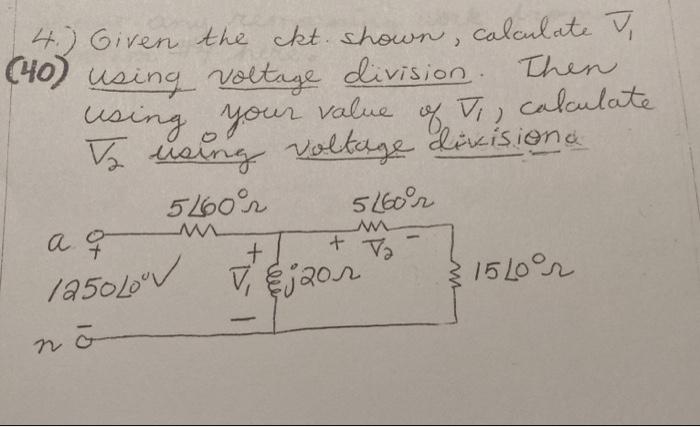 4.) Given the ckt. shown, calculate V̅₁
(40) using voltage division. Then
using your value of V̅₁, calculate
V̅₂ using voltage division.
5∠60°Ω 5∠60°Ω
a + + V̅₂ -
1250∠0°V V̅₁ j20Ω 15∠0°Ω
+
-
n -